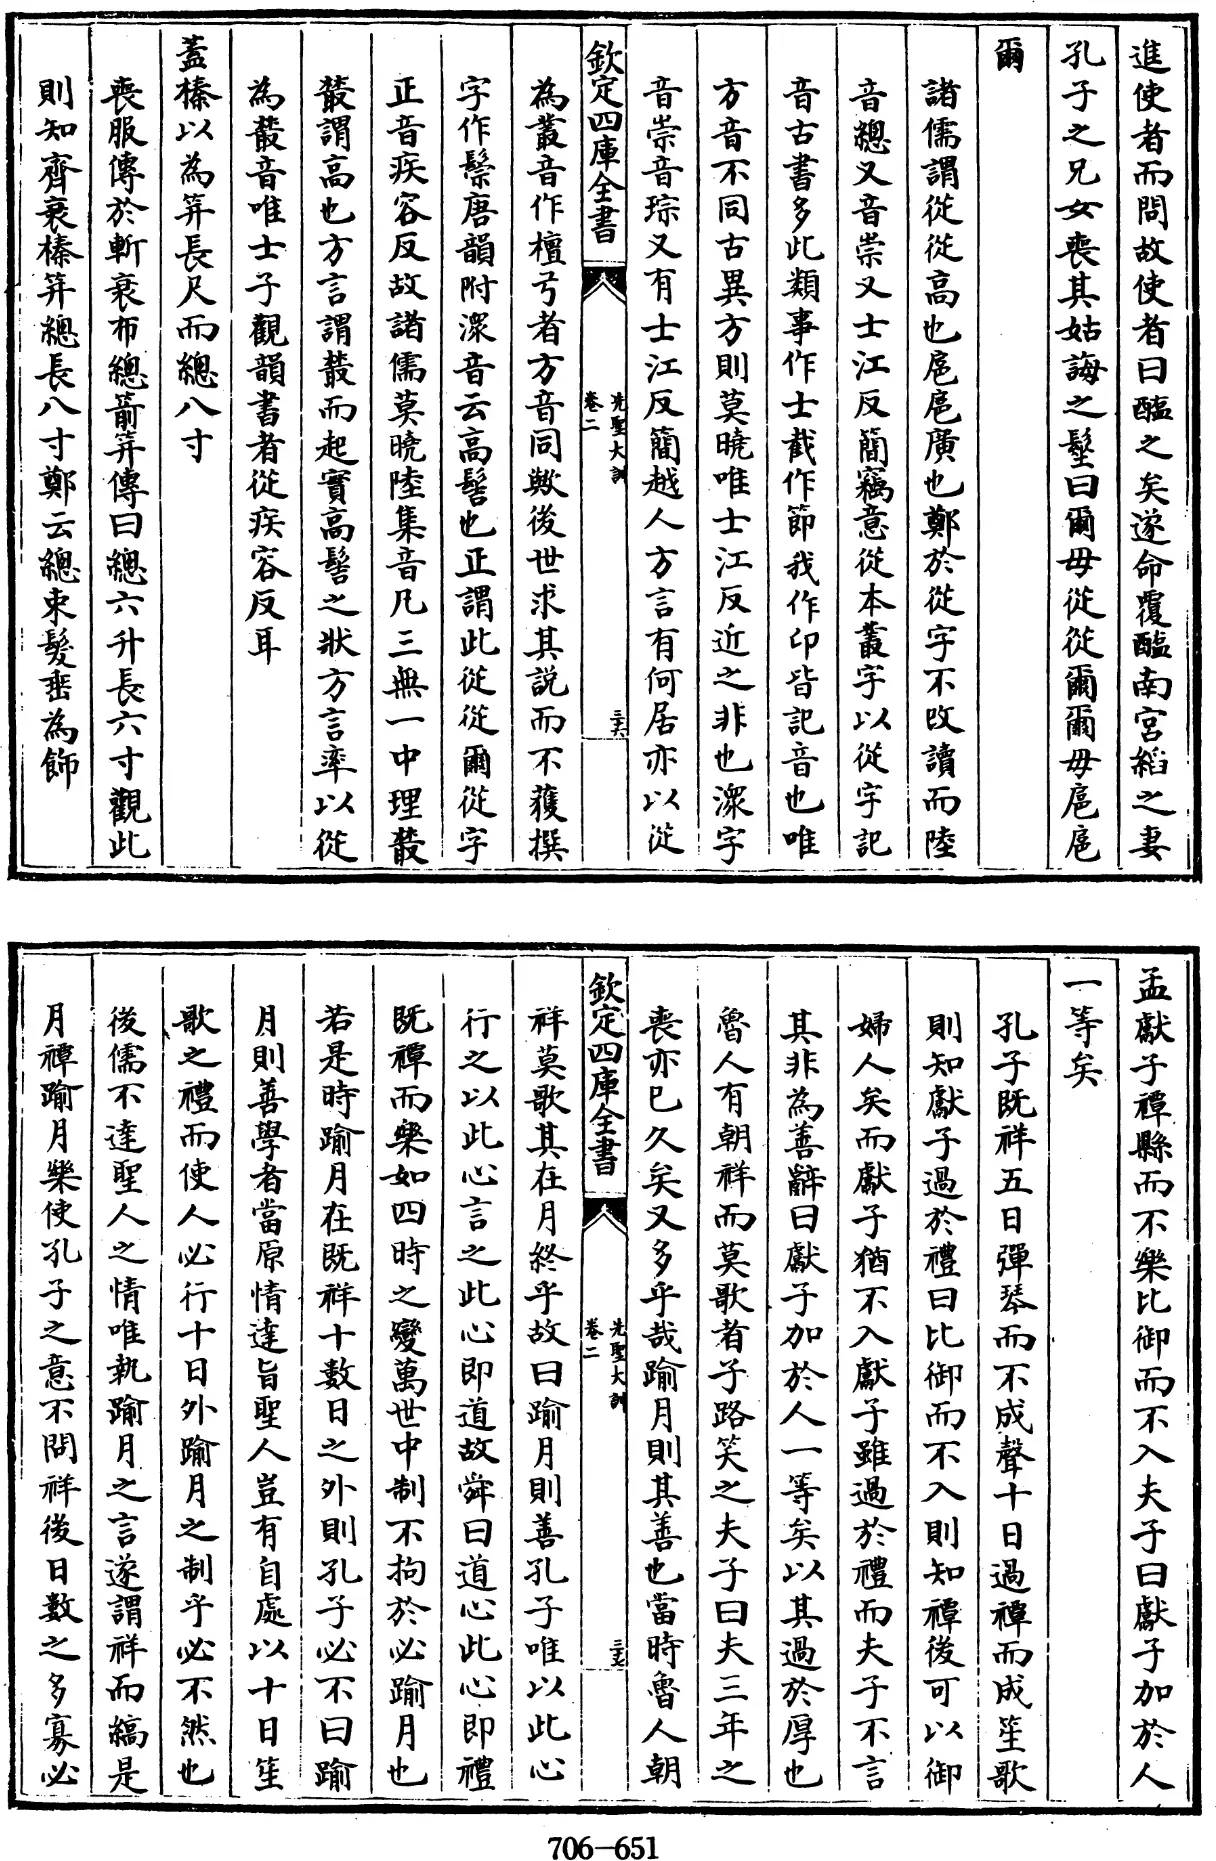 進使者而問故使者曰醢之矣遂命覆醢南宮縚之妻
孔子之兄女喪其姑誨之髽曰爾毋從從爾爾毋扈扈
爾
諸儒謂從從高也扈扈廣也鄭於從字不改讀而陸
音總又音崇又士江反簡竊意從本叢字以從字記
音古書多此類事作士截作節我作卬皆記音也唯
方音不同古異方則莫曉唯士江反近之非也潨字
音崇音琮又有士江反簡越人方言有何居亦以從
欽定四庫全書
先聖大訓
卷二
三六
為叢音作檀弓者方音同歟後世求其說而不獲撰
字作鬃唐韻附潨音云高髻也正謂此從從爾從字
正音疾容反故諸儒莫曉陸集音凡三無一中理叢
叢謂高也方言謂叢而起實高髻之狀方言率以從
為叢音唯士子觀韻書者從疾容反耳
蓋榛以為笄長尺而總八寸
喪服傳於斬衰布總箭笄傳曰總六升長六寸觀此
則知齊衰榛笄總長八寸鄭云總束髮垂為飾
孟獻子禫縣而不樂比御而不入夫子曰獻子加於人
一等矣
孔子既祥五日彈琴而不成聲十日過禫而成笙歌
則知獻子過於禮曰比御而不入則知禫後可以御
婦人矣而獻子猶不入獻子雖過於禮而夫子不言
其非為善辭曰獻子加於人一等矣以其過於厚也
魯人有朝祥而莫歌者子路笑之夫子曰夫三年之
喪亦已久矣又多乎哉踰月則其善也當時魯人朝
欽定四庫全書
先聖大訓
卷二
三七
祥莫歌其在月終乎故曰踰月則善孔子唯以此心
行之以此心言之此心即道故舜曰道心此心即禮
既禫而樂如四時之變萬世中制不拘於必踰月也
若是時踰月在既祥十數日之外則孔子必不曰踰
月則善學者當原情達旨聖人豈有自處以十日笙
歌之禮而使人必行十日外踰月之制乎必不然也
後儒不達聖人之情唯執踰月之言遂謂祥而縞是
月禫踰月樂使孔子之意不問祥後日數之多寡必
706-651